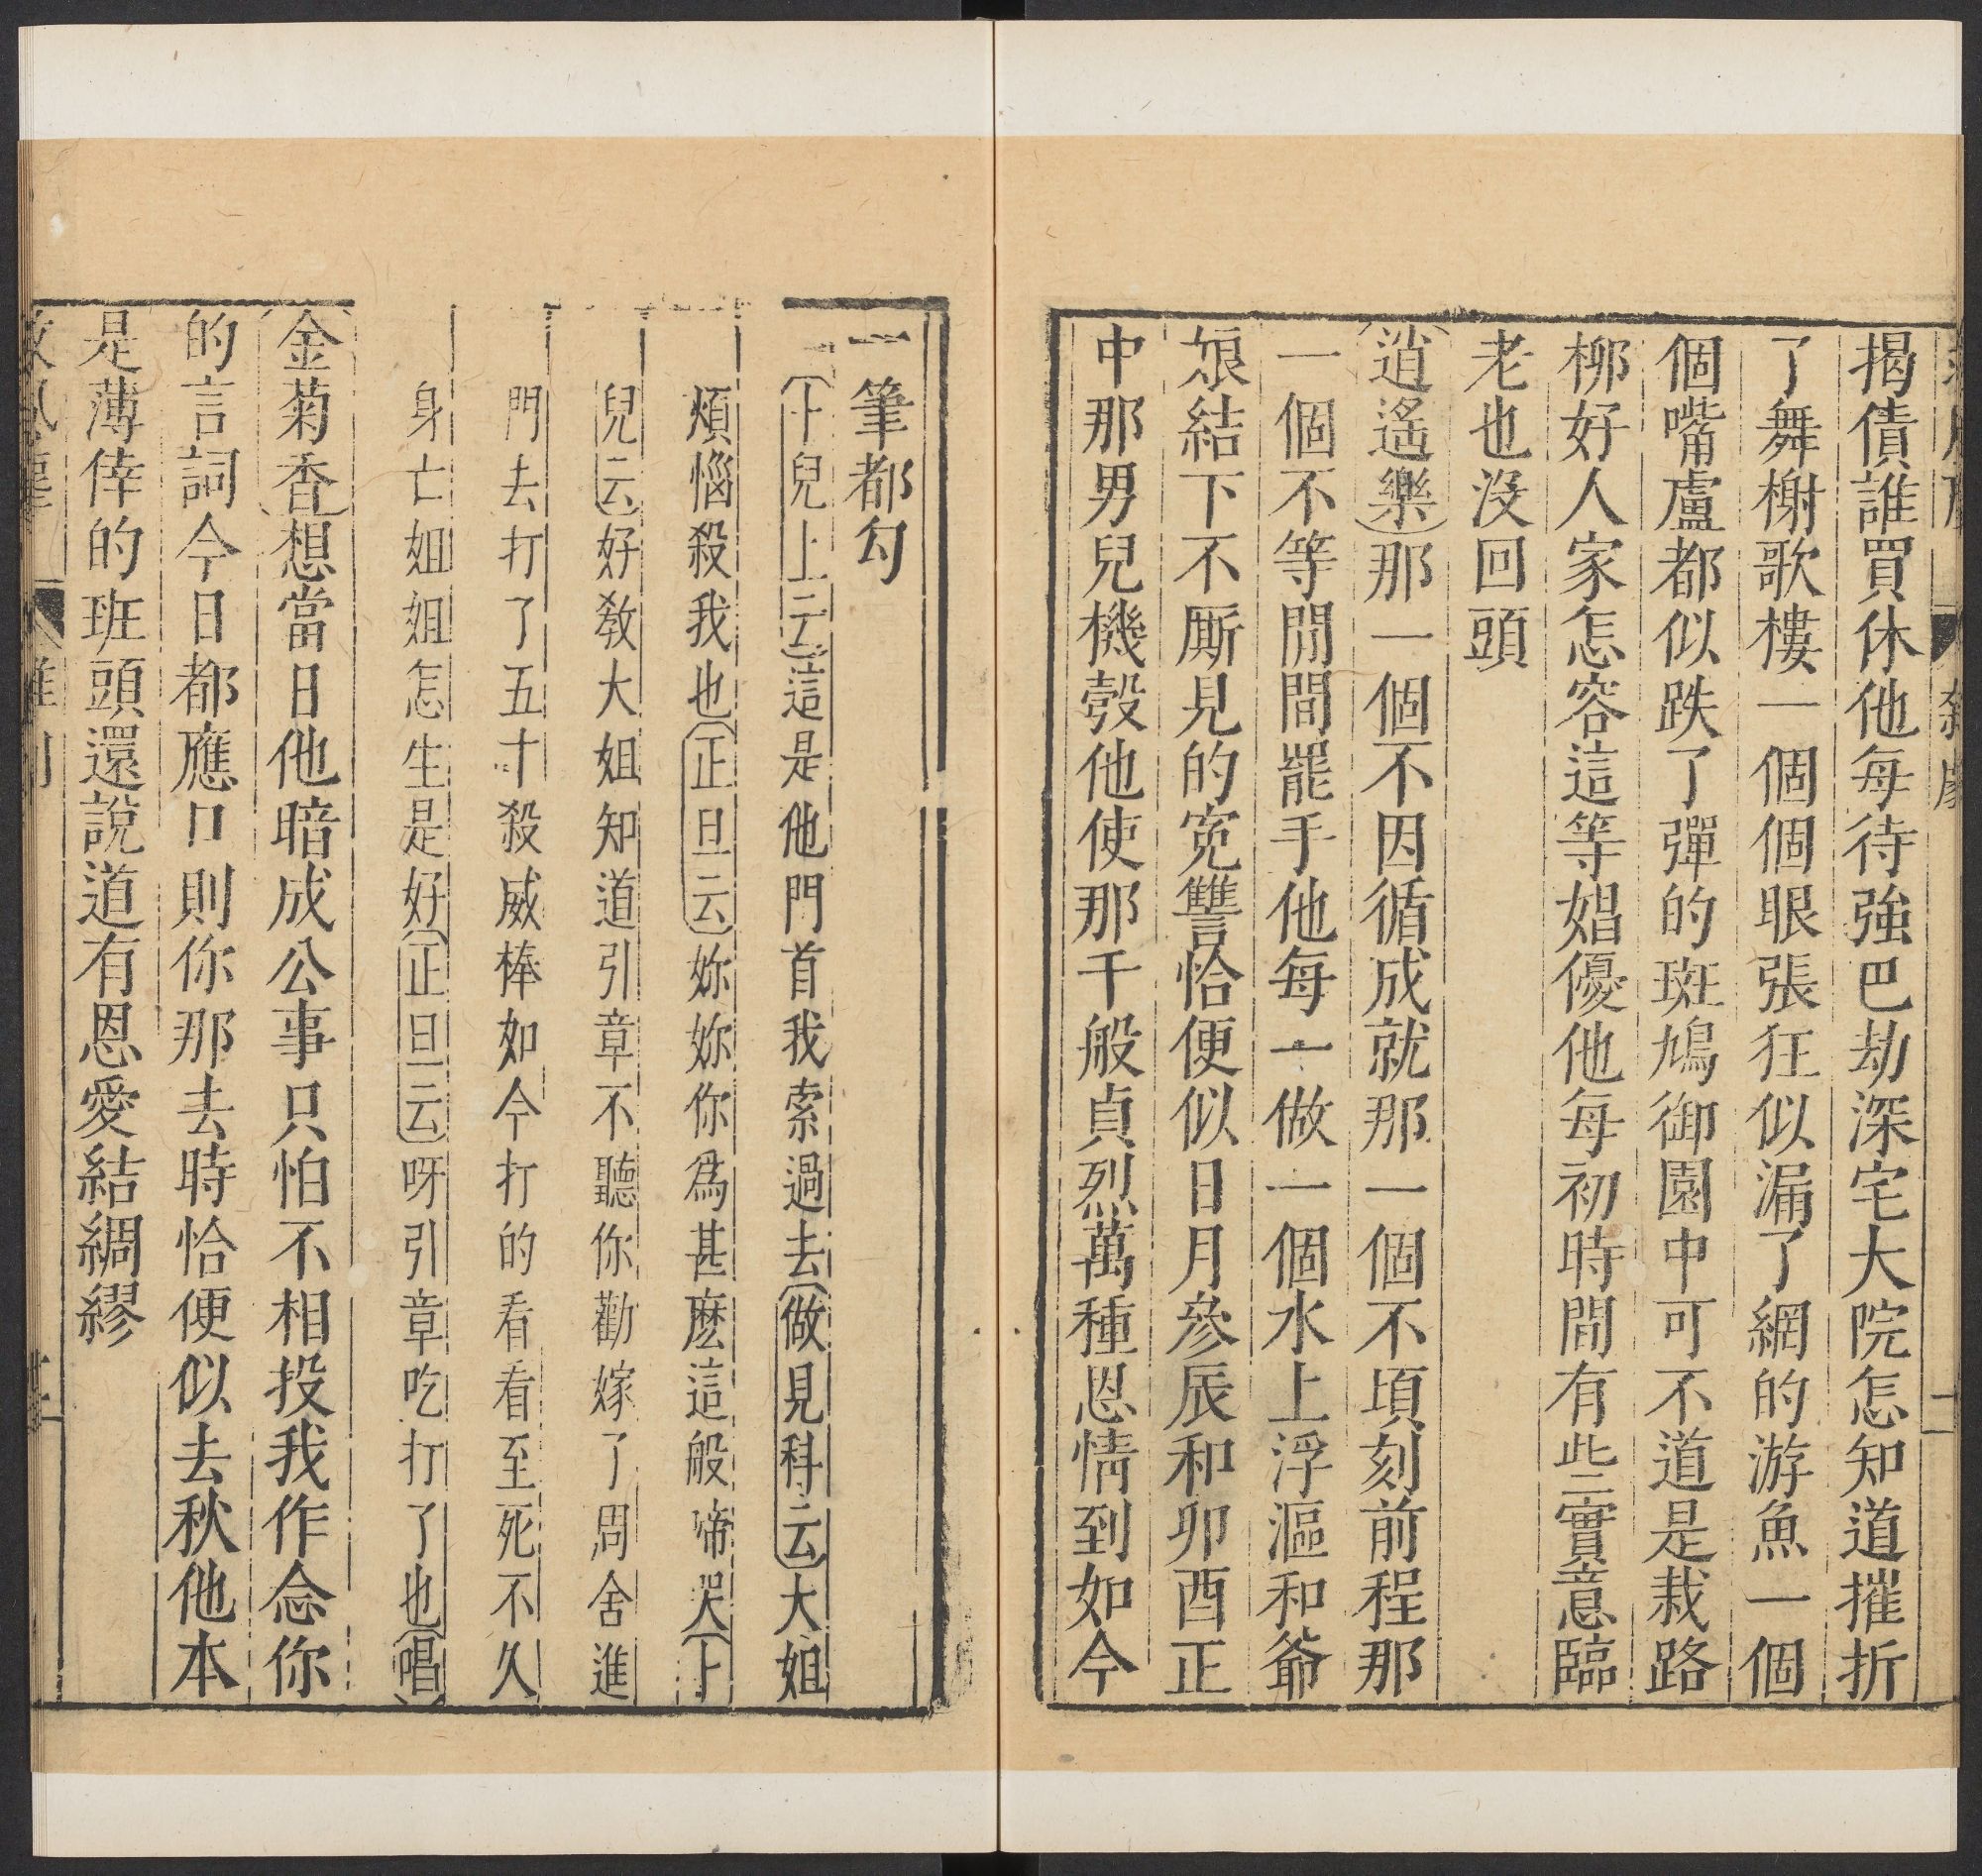 揭債誰買休他每待強巴劫深宅大院怎知道摧折
了舞榭歌樓一個個眼張狂似漏了網的游魚一個
個嘴盧都似跌了彈的斑鳩御園中可不道是栽路
柳好人家怎容這等娼優他每初時間有些實意臨
老也沒回頭
逍遙樂那一個不因循成就那一個不頃刻前程那
一個不等閒間罷手他每一做一個水上浮漚和爺
娘結下不厮見的寃讐恰便似日月參辰和卯酉正
中那男兒機彀他使那千般貞烈萬種恩情到如今
一筆都勾
卜兒上云這是他門首我索過去做見科云大姐
煩惱殺我也正旦云妳妳你爲甚麽這般啼哭卜
兒云好教大姐知道引章不聽你勸嫁了周舍進
門去打了五十殺威棒如今打的看看至死不久
身亡姐姐怎生是好正旦云呀引章吃打了也唱
金菊香想當日他暗成公事只怕不相投我作念你
的言詞今日都應口則你那去時恰便似去秋他本
是薄倖的班頭還說道有恩愛結綢繆